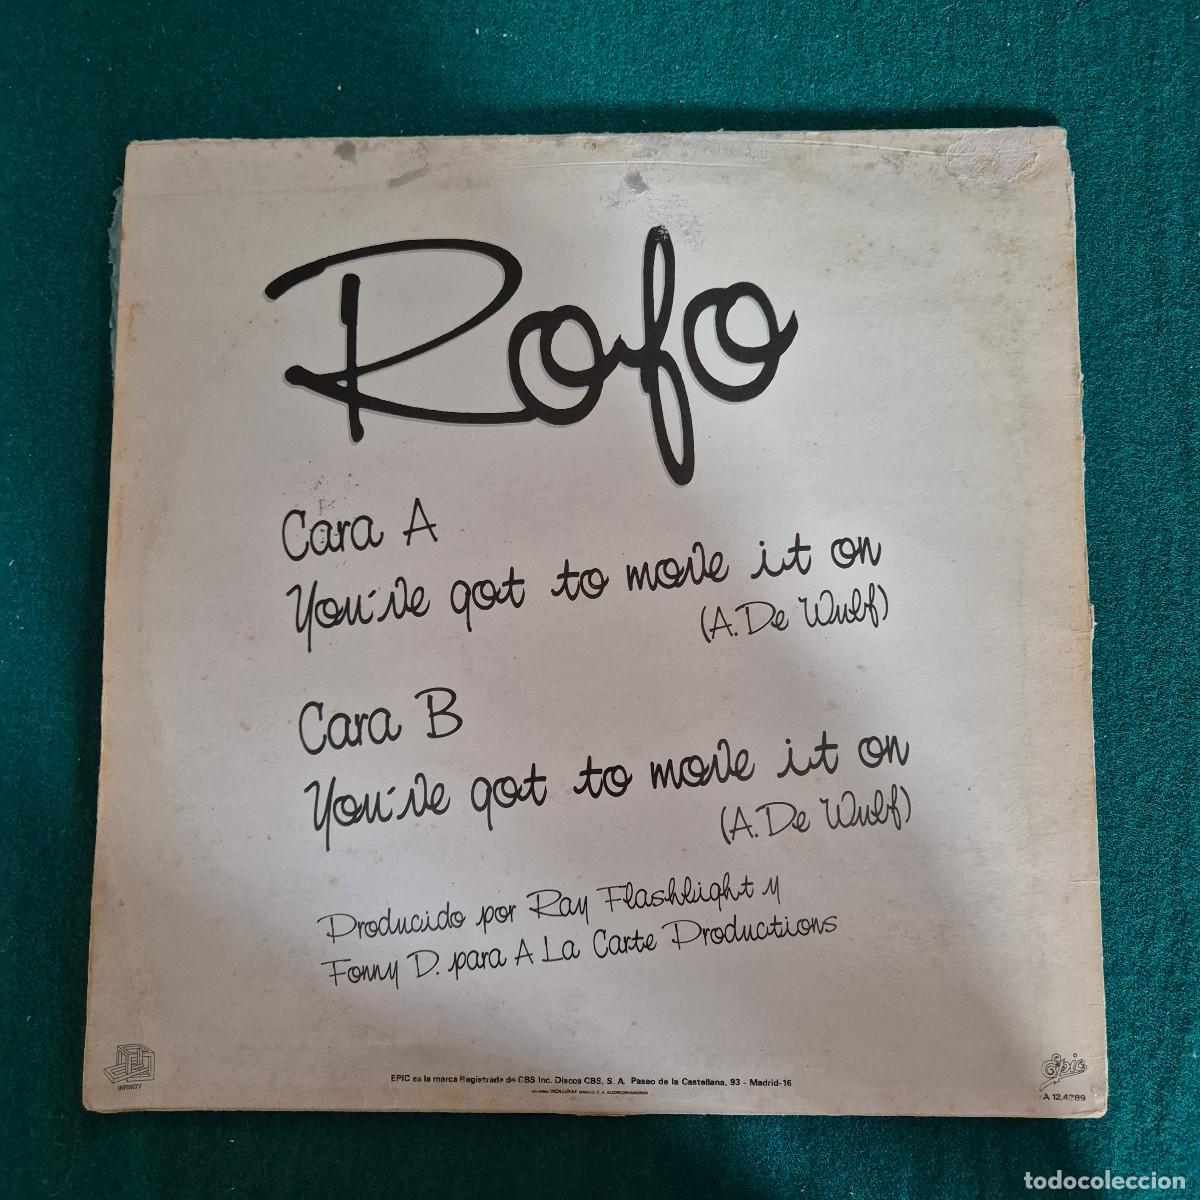 Rofo
Cara A
You've got to move it on
(A. De Wulf)
Cara B
You've got to move it on
(A. De Wulf)
Producido por Ray Flashlight y
Fonny D. para A La Carte Productions
INFINITY
EPIC es la marca Registrada de CBS Inc. Discos CBS, S. A. Paseo de la Castellana, 93 - Madrid-16
Epic
A 12.4289
todocoleccion